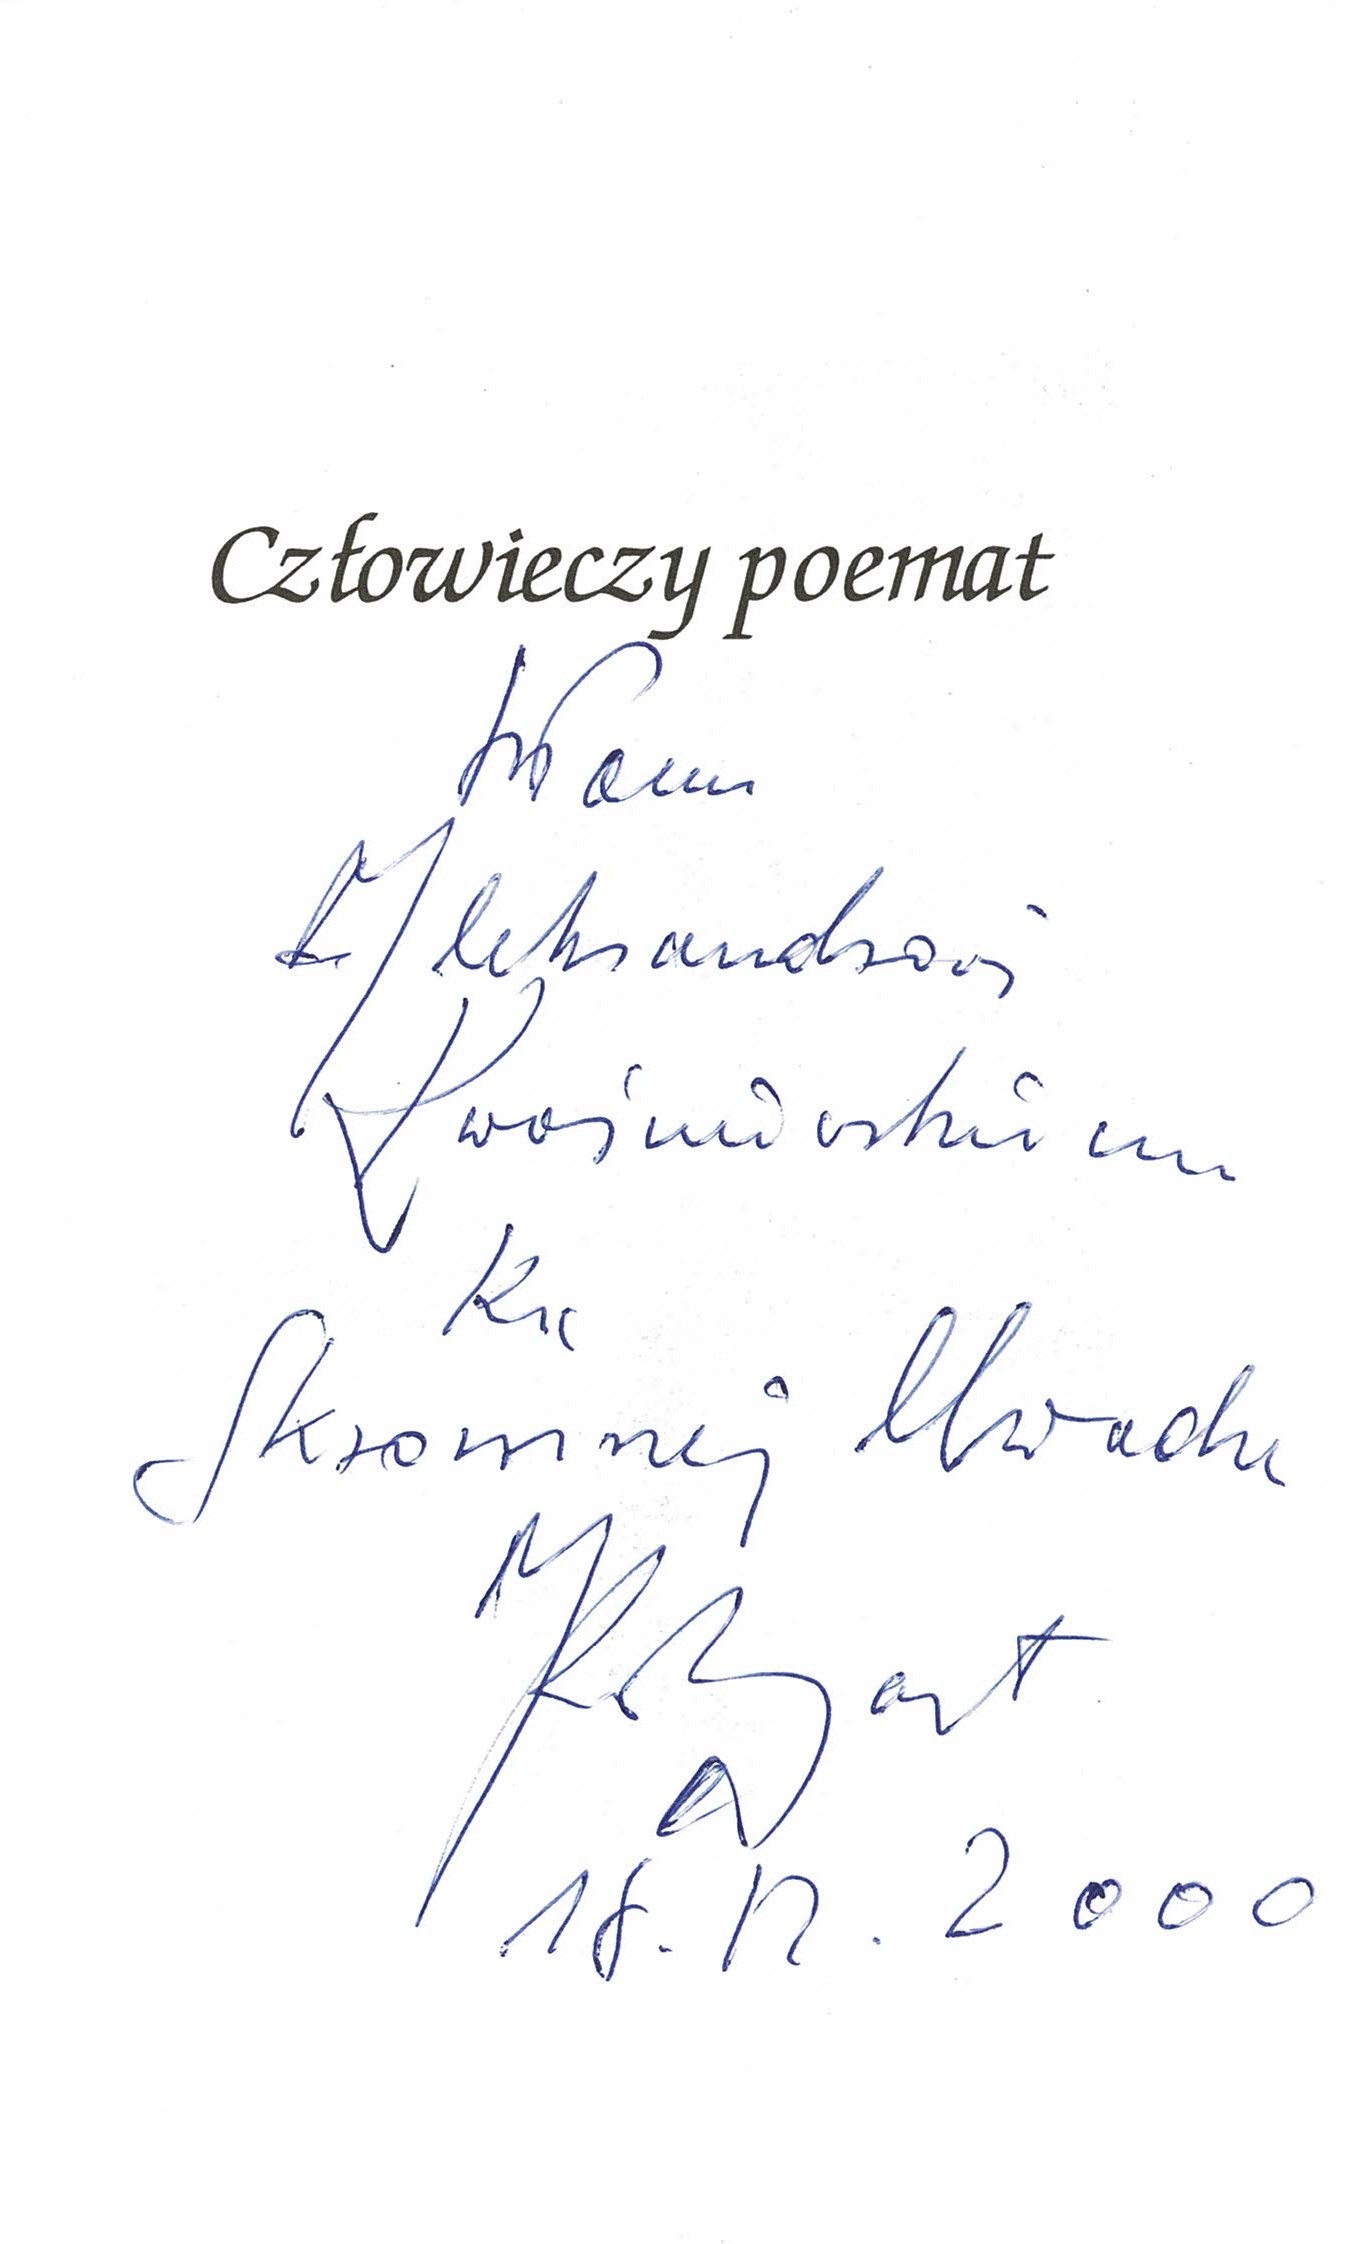 Człowieczy poemat
Panu
Aleksandrowi
Kwaśniewskiemu
Ku
Skromnej Uwadze
18. 2000